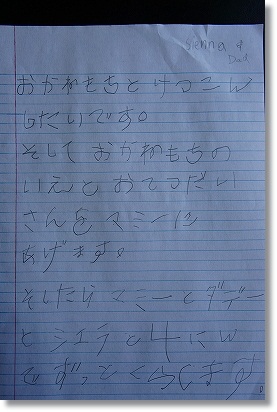 sienna &
Dad
おかねもちとけつこん
したいです。
そしておかねもちの
いえとおてつだい
さんをマミーに
あげます。
そしたらマミーとダデー
とシエラと4にん
でずっとくらします